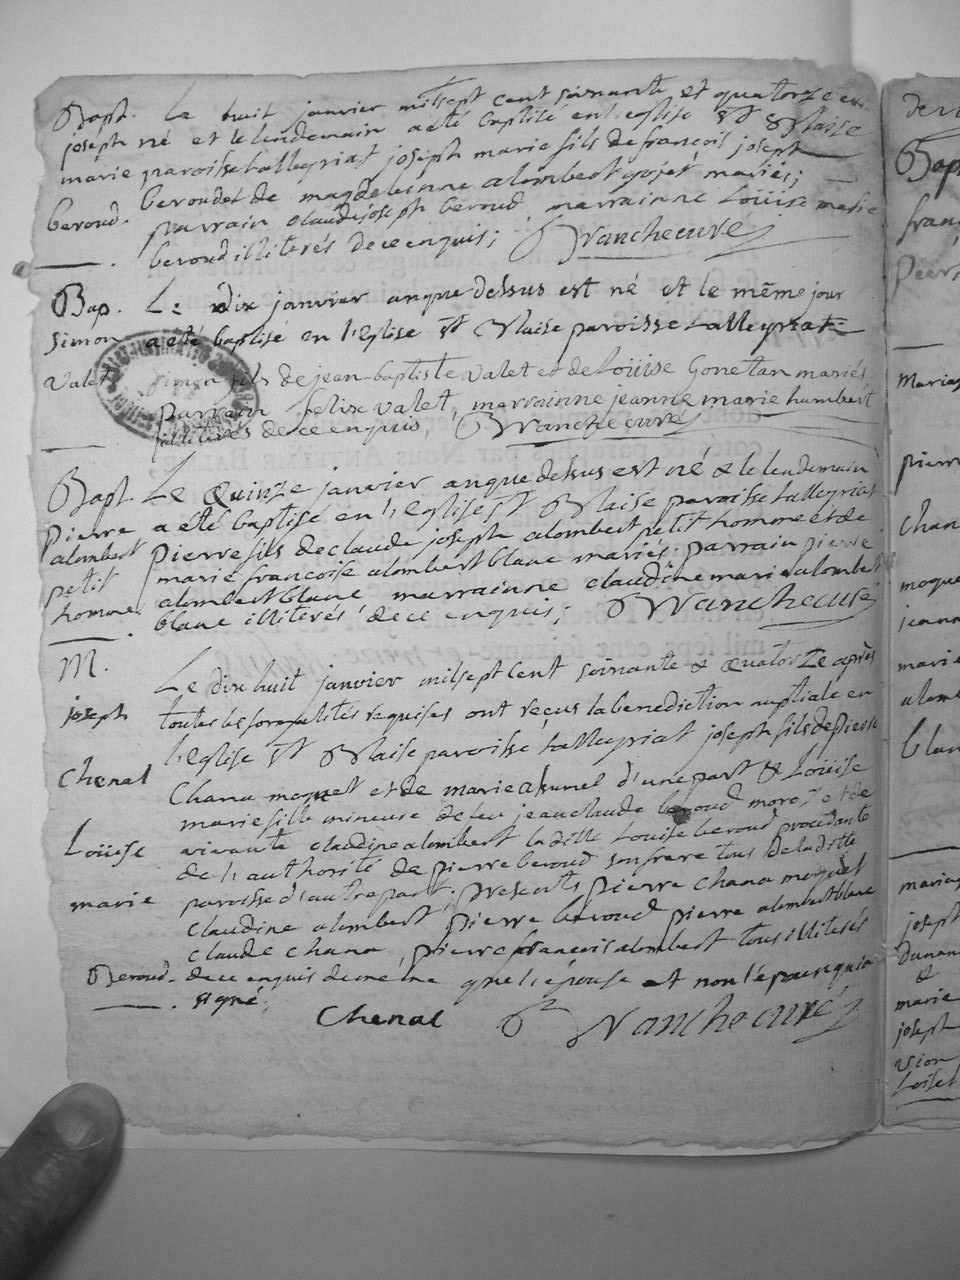 Bapt. Le huit janvier milsept cent soixante et quatorze est
joseph né et le lendemain a eté baptisé en l'eglise St Blaise
marie paroisse talleyriat joseph marie fils de françois joseph
beroud et de magdeleinne alombert gojet mariés;
beroud. parrain claude joseph beroud marrainne Loüise marie
beroud illiterés de ce enquis; Branche curé
Bap. Le dix janvier an que dessus est né et le même jour
simon a eté baptisé en l'Eglise St Blaise paroisse talleyriat
Valet simon fils de jean baptiste valet et de Loüise Gonetan mariés
parrain felix valet, marrainne jeanne marie humbert
illiterés de ce enquis, Branche curé
Bapt. Le quinze janvier an que dessus est né & le lendemain
pierre a eté baptisé en l'Eglise St Blaise paroisse talleyriat
alombert pierre fils de claude joseph alombert petit homme et de
petit marie françoise alombert blanc mariés. parrain pierre
homme alombert blanc marrainne claudine marie alombert
blanc illiterés de ce enquis; Branche curé
M. Le dix huit janvier milsept cent soixante & quatorze après
joseph toutes les formalités requises ont reçus la benediction nuptiale en
l'Eglise St Blaise paroisse talleyriat joseph fils de pierre
Chenal Chana moquet et de marie d'une part & Loüise
marie fille mineure de feu jean claude beroud mort et de
Loüise vivante claudine alombert la ditte Louise beroud procedante
de l'authorité de pierre beroud son frere tous de la ditte
marie paroisse d'autre part; presents pierre chana moquet
claudine alombert, pierre beroud pierre alombert blanc
claude chana, pierre françois alombert tous illiterés
Beroud. de ce enquis de meme que l'épouse et non l'époux qui a
signé.
Chenal Branche curé
de
Bapt
franç
peer
Mariag
pierr
Chan
moque
jeann
marie
alomb
blan
mariag
joseph
&
marie
joseph